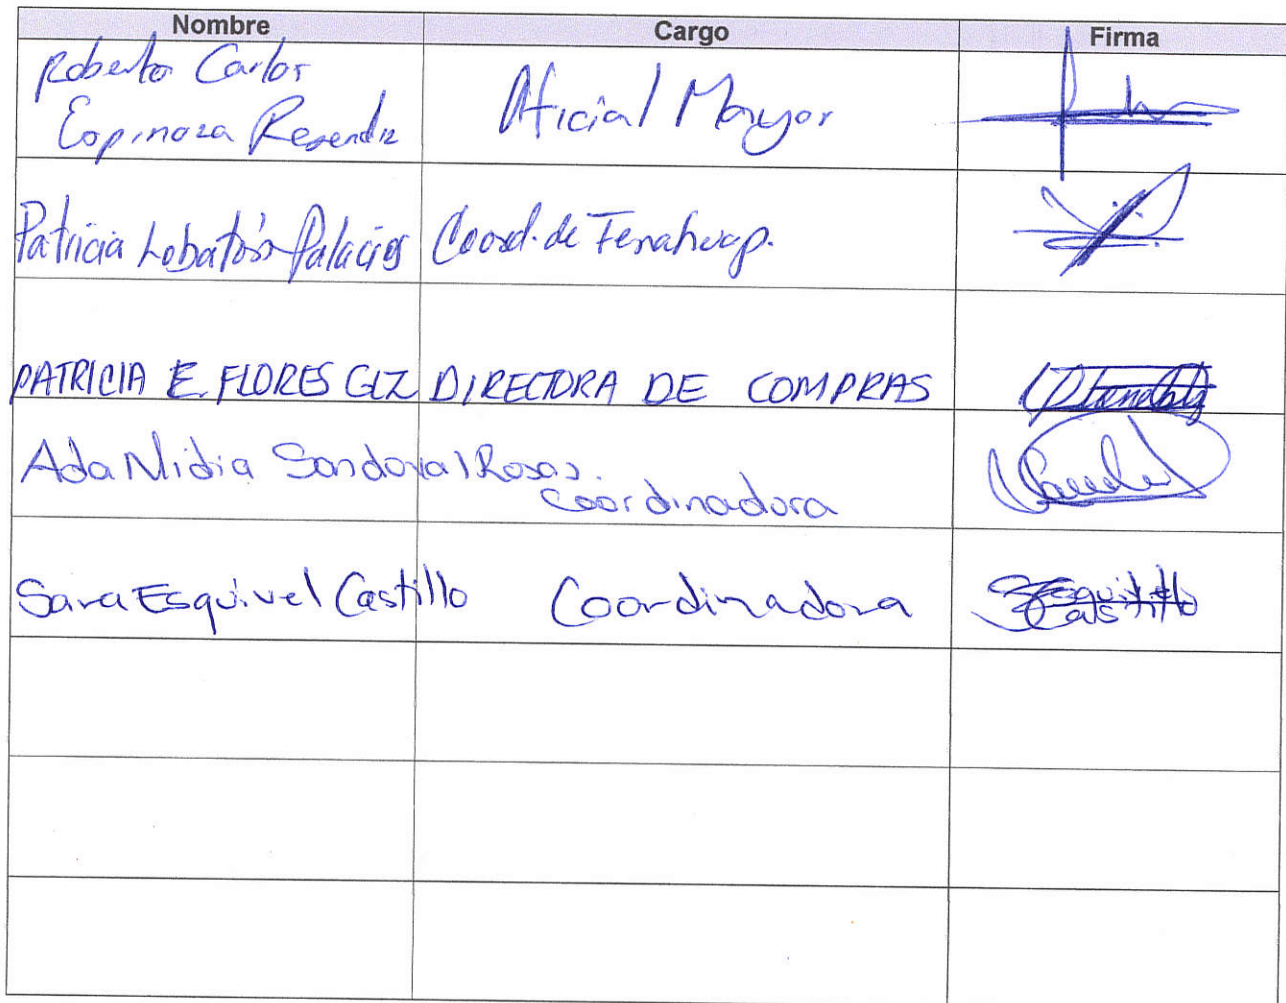 Nombre Cargo Firma
Roberto Carlos
Espinoza Resendiz Oficial Mayor
Patricia Palacios Coord. de
PATRICIA E. FLORES GLZ DIRECTORA DE COMPRAS
Ada Nidia Sandoval Rosas.
Coordinadora
Sara Esquivel Castillo Coordinadora
SEsquivel
Castillo